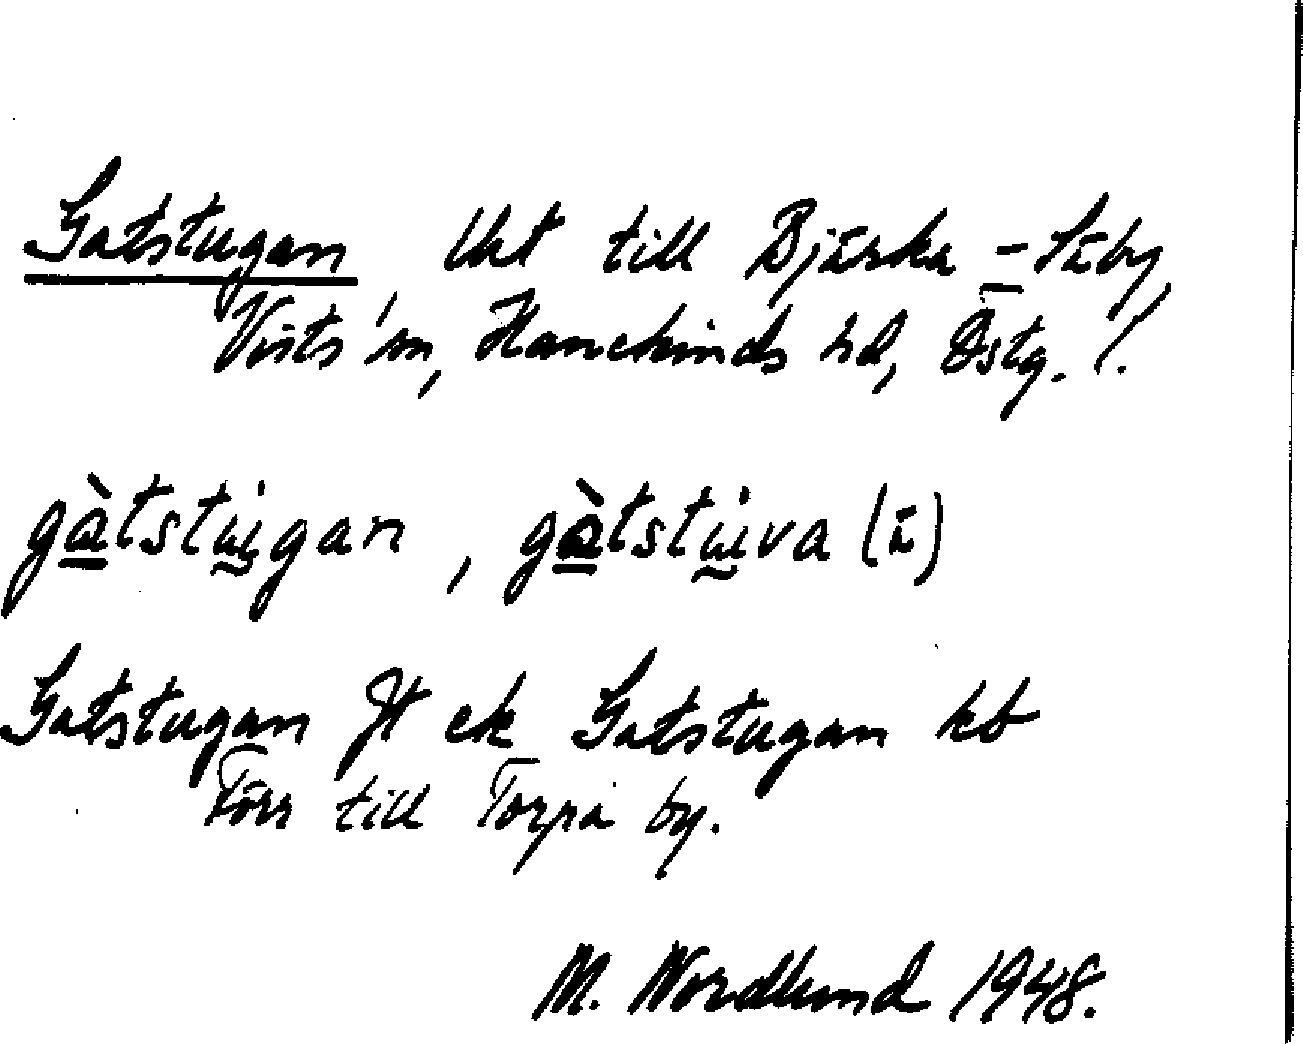 Gatstugan, Utt till Bjärka-Säby,
Vists sn, Hanekinds hd, Östg. l.
gàtstu̇gan, gàtstu̇va (ä)
Gatstugan Jt ek Gatstugan kb
Förr till Torpa by.
M. Nordlund 1948.